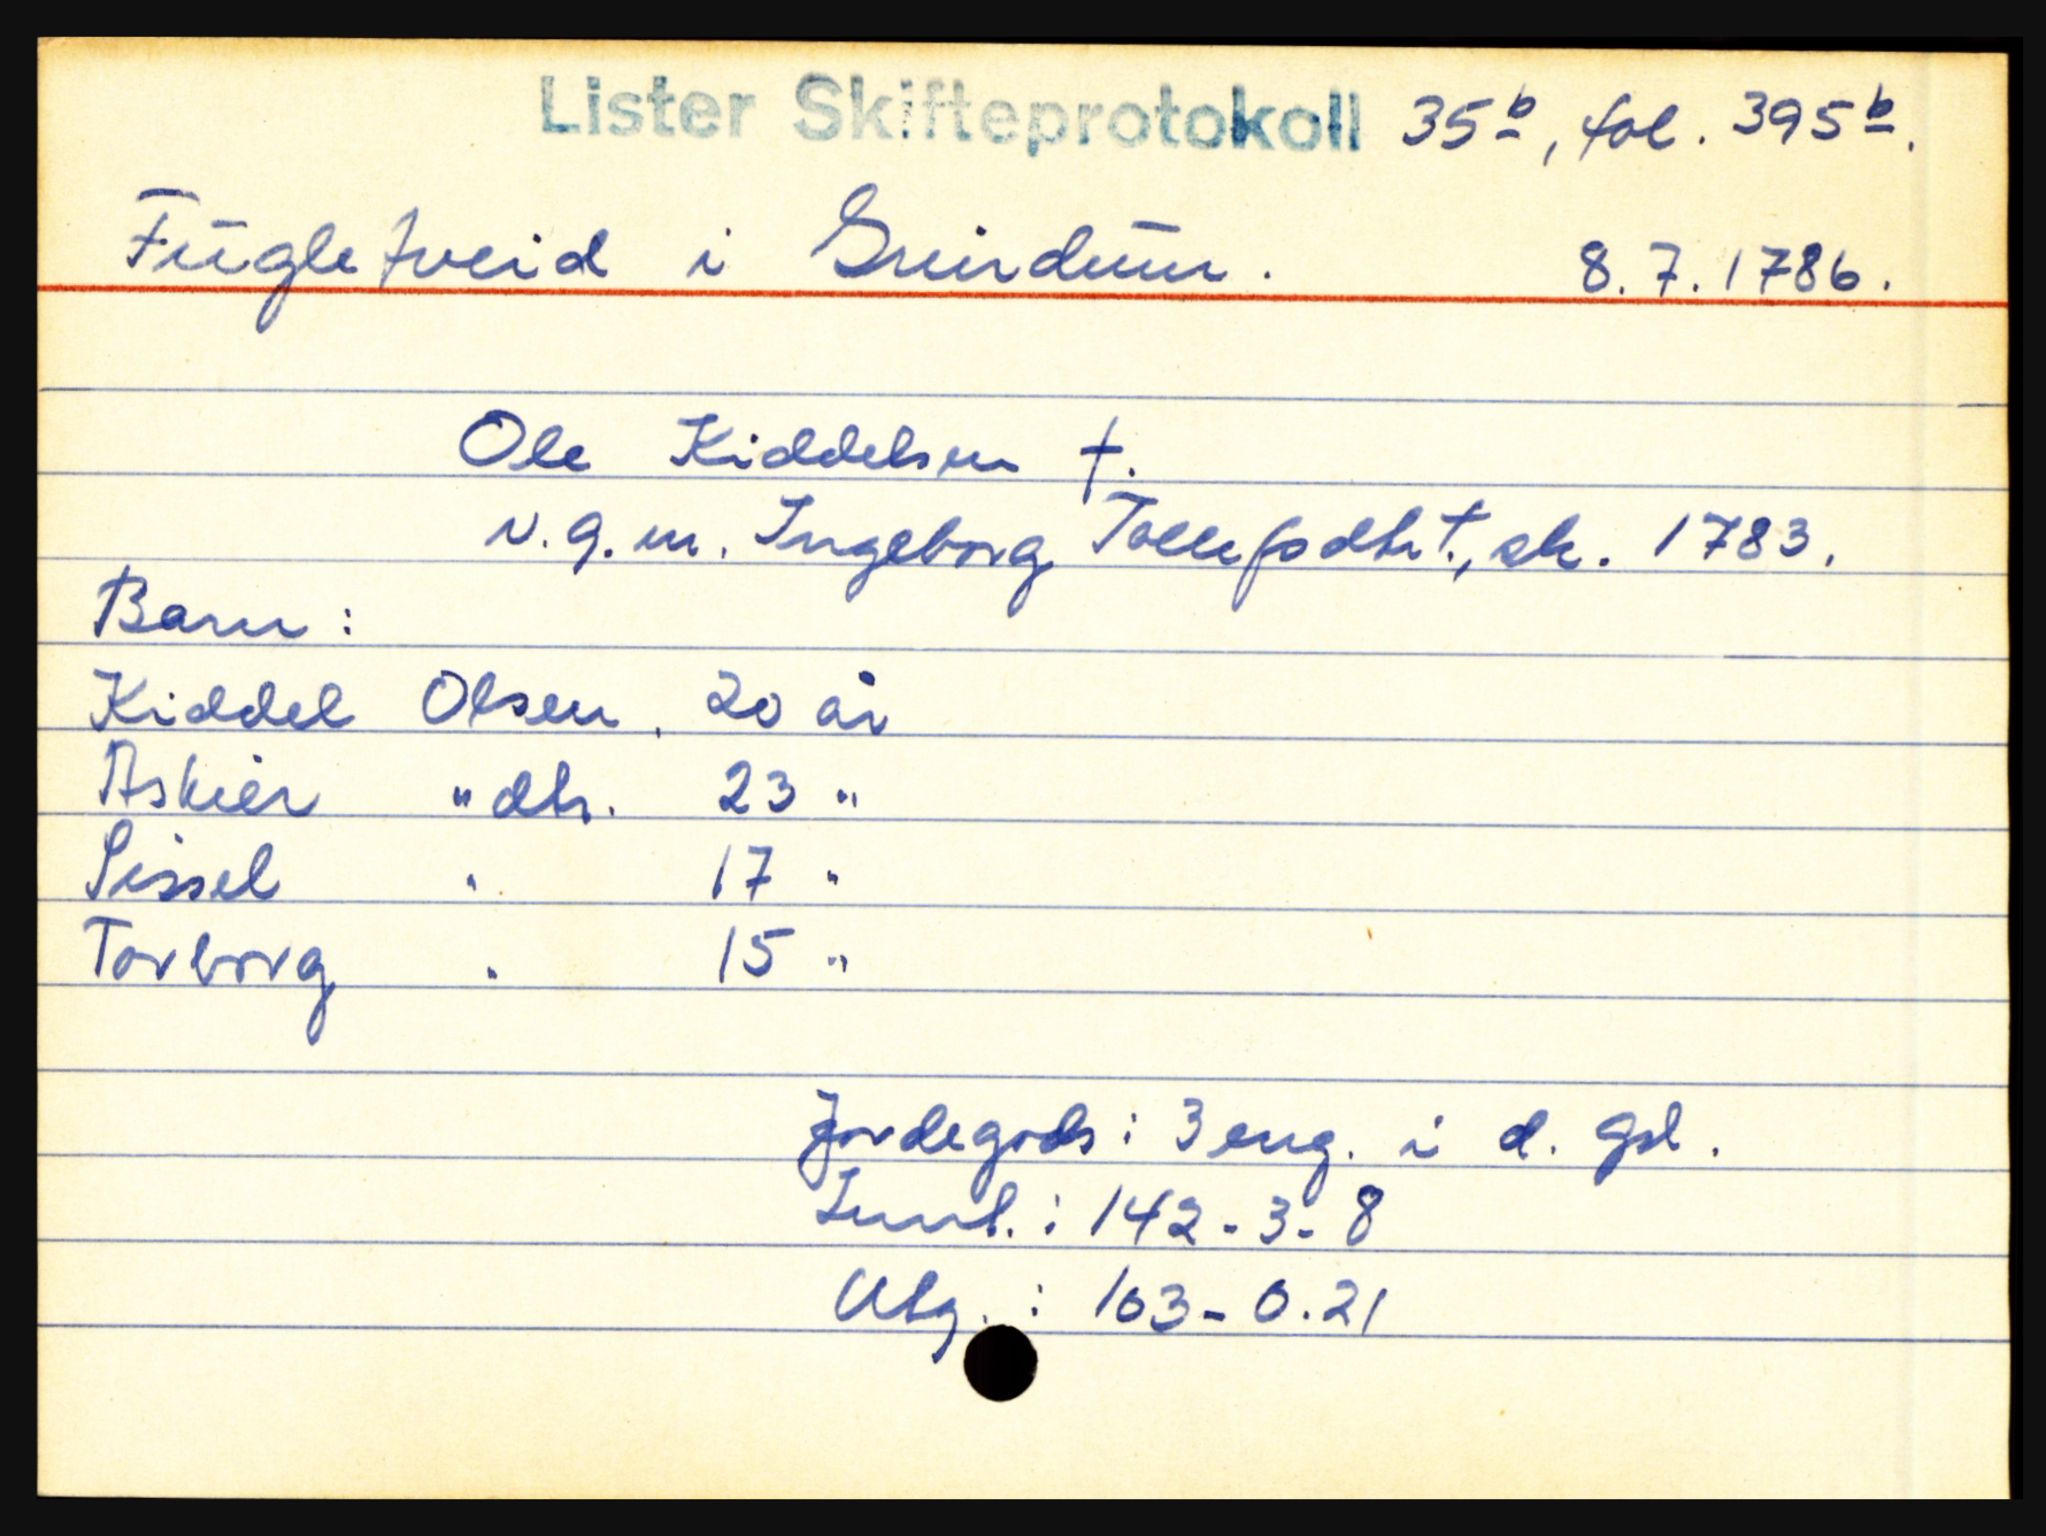 Lister Skifteprotokoll 35b, fol. 395b.
Fugletveid i Grindum. 8.7.1786.
Ole Kiddelsen †.
v.g.m. Ingeborg Tollefsdtr †., sk. 1783.
Barn:
Kiddel Olsen, 20 år
Askier " dtr. 23 "
Sissel " 17 "
Torborg " 15 "
Jordegods: 3 eng. i d. gd.
Innt.: 142-3-8
Utg.: 103-0.21